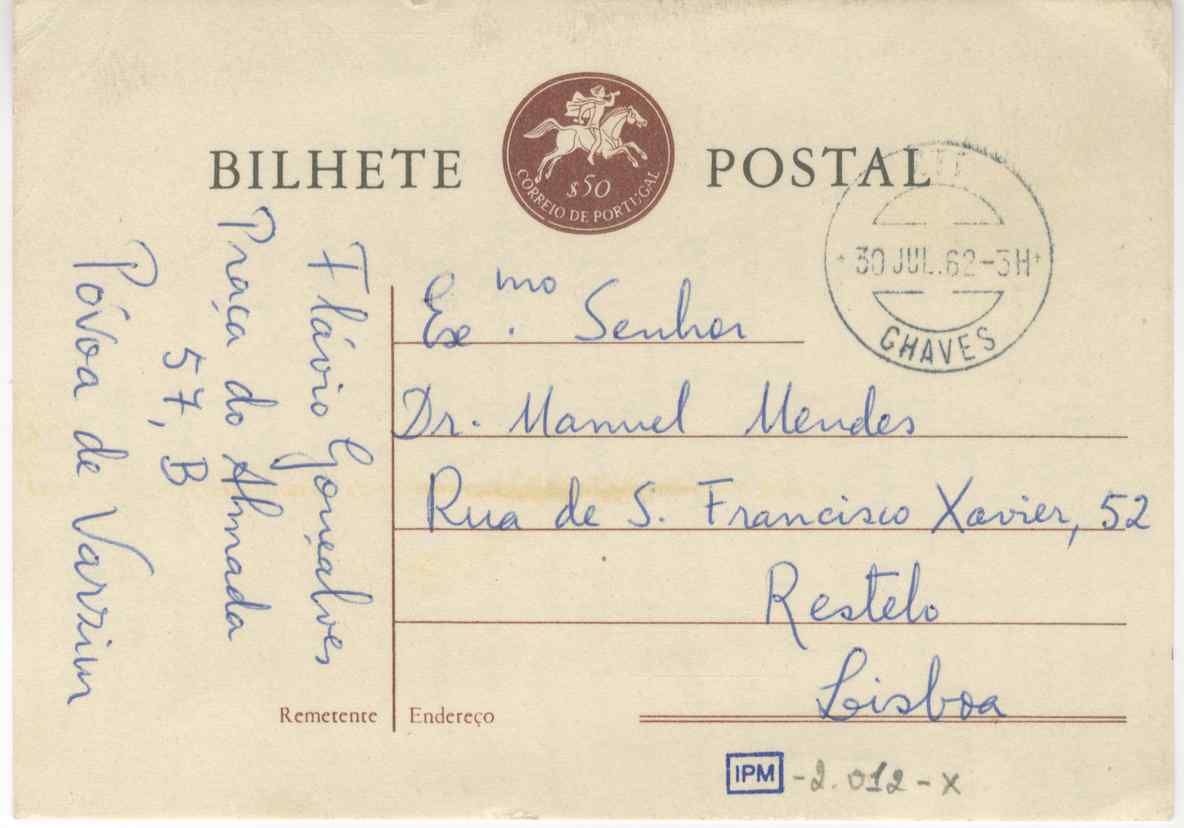 BILHETE POSTAL
CORREIO DE PORTUGAL
$50
30 JUL. 62-3H
CHAVES
Flávio Gonçalves
Praça do Almada
57, B
Póvoa de Varzim
Exmo. Senhor
Dr. Manuel Mendes
Rua de S. Francisco Xavier, 52
Restelo
Lisboa
Remetente
Endereço
IPM -2.012-X